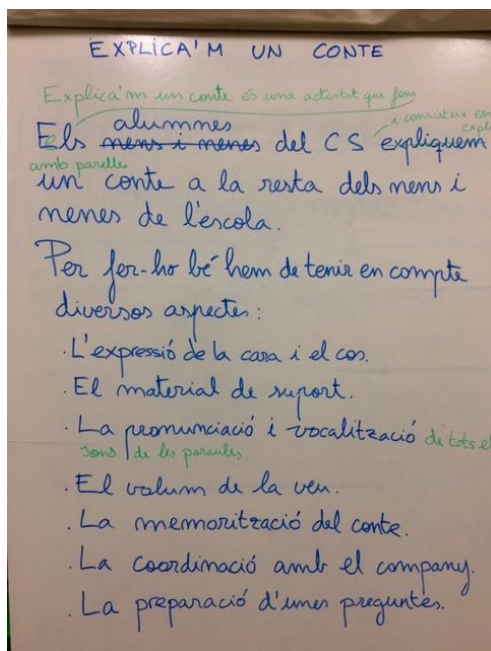 EXPLICA'M UN CONTE
Explica'm un conte és una activitat que fem
alumnes
i consisteix en
Els nens i nenes del CS expliquem
amb parelles
un conte a la resta dels nens i
nenes de l'escola.
Per fer-ho bé hem de tenir en compte
diversos aspectes:
. L'expressió de la cara i el cos.
. El material de suport.
. La pronunciació i vocalització de tots el
sons de les paraules.
. El volum de la veu.
. La memorització del conte.
. La coordinació amb el company.
. La preparació d'unes preguntes.